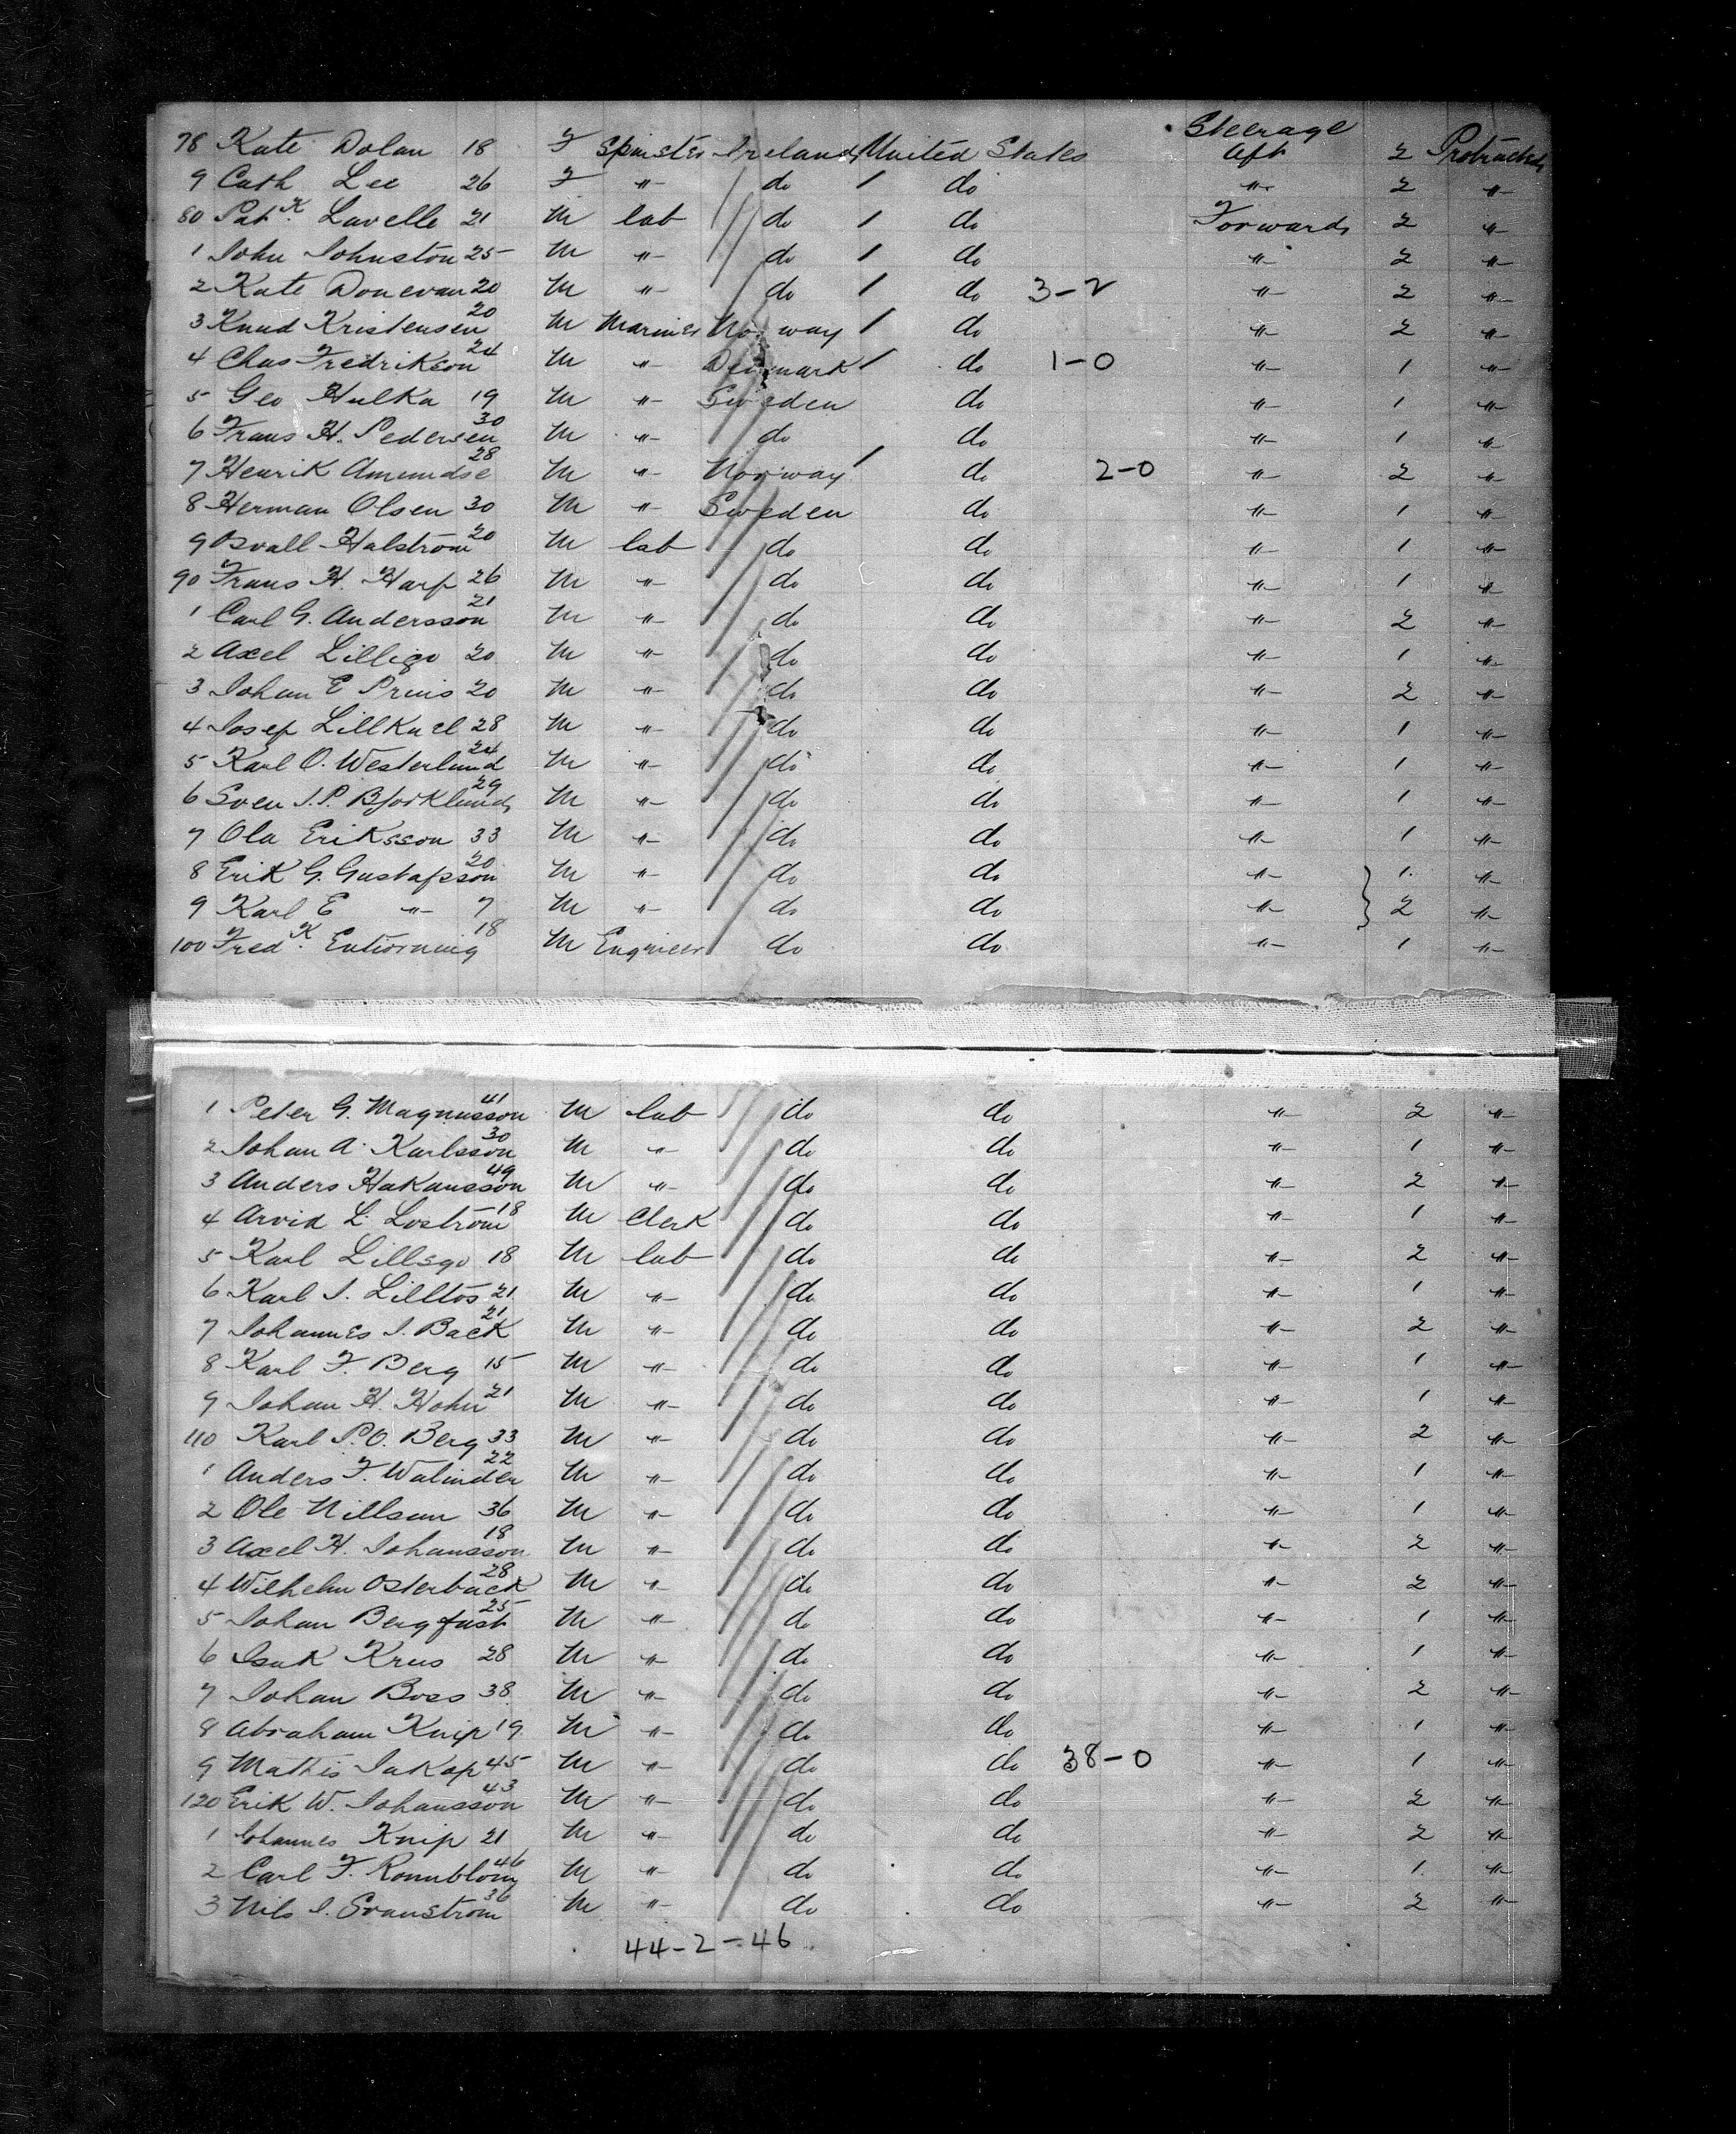 Steerage
78 Kate Dolan 18 F Spinster Ireland United States Aft 2 Protracted
9 Cath Lee 26 F " do 1 do " 2 "
80 Patk Lavelle 21 M lab do 1 do Forwards 2 "
1 John Johnston 25 M " do 1 do " 2 "
2 Kate Donevan 20 M " do 1 do 3-2 " 2 "
3 Knud Kristensen 20 M Mariner Norway 1 do " 2 "
4 Chas Fredrikson 24 M " Denmark 1 do 1-0 " 1 "
5 Geo Hulka 19 M " Sweden do " 1 "
6 Frans H. Pedersen 30 M " do do " 1 "
7 Henrik Amundse 28 M " Norway 1 do 2-0 " 2 "
8 Herman Olsen 30 M " Sweden do " 1 "
9 Halstrom 20 M lab do do " 1 "
90 Frans H. Harp 26 M " do do " 1 "
1 Carl G. Andersson 21 M " do do " 2 "
2 Axel Lilligo 20 M " do do " 1 "
3 Johan E Prius 20 M " do do " 2 "
4 Josef 28 M " do do " 1 "
5 Karl O. Westerlund 24 M " do do " 1 "
6 Sven J.P. Bjorklund 29 M " do do " 1 "
7 Ola Eriksson 33 M " do do " 1 "
8 Erik G. Gustafsson 20 M " do do " 1 "
9 Karl E " 7 M " do do " 2 "
100 Fredk 18 M Engineer do do " 1 "
1 Peter G. Magnusson 41 M lab do do " 2 "
2 Johan A. Karlsson 30 M " do do " 1 "
3 Anders Hakansson 49 M " do do " 2 "
4 Arvid L. Lostrom 18 M Clerk do do " 1 "
5 Karl Lillsgo 18 M lab do do " 2 "
6 Karl J. Lilltos 21 M " do do " 1 "
7 Johannes J. Back 21 M " do do " 2 "
8 Karl F. Berg 15 M " do do " 1 "
9 Johan H. Hohn 21 M " do do " 1 "
110 Karl P.O. Berg 33 M " do do " 2 "
1 Anders F. Walinder 22 M " do do " 1 "
2 Ole Nillsan 36 M " do do " 1 "
3 Axel H. Johansson 18 M " do do " 2 "
4 Wilhelm Osterback 28 M " do do " 2 "
5 Johan Bergfast 25 M " do do " 1 "
6 Isak Krus 28 M " do do " 1 "
7 Johan Boss 38 M " do do " 2 "
8 Abraham Knip 19 M " do do " 1 "
9 Mathis Jakop 45 M " do do 38-0 " 1 "
120 Erik W. Johansson 43 M " do do " 2 "
1 Johannes Knip 21 M " do do " 2 "
2 Carl F. Ronnblom 46 M " do do " 1 "
3 Nils J. Svanstrom 36 M " do do " 2 "
44-2-46